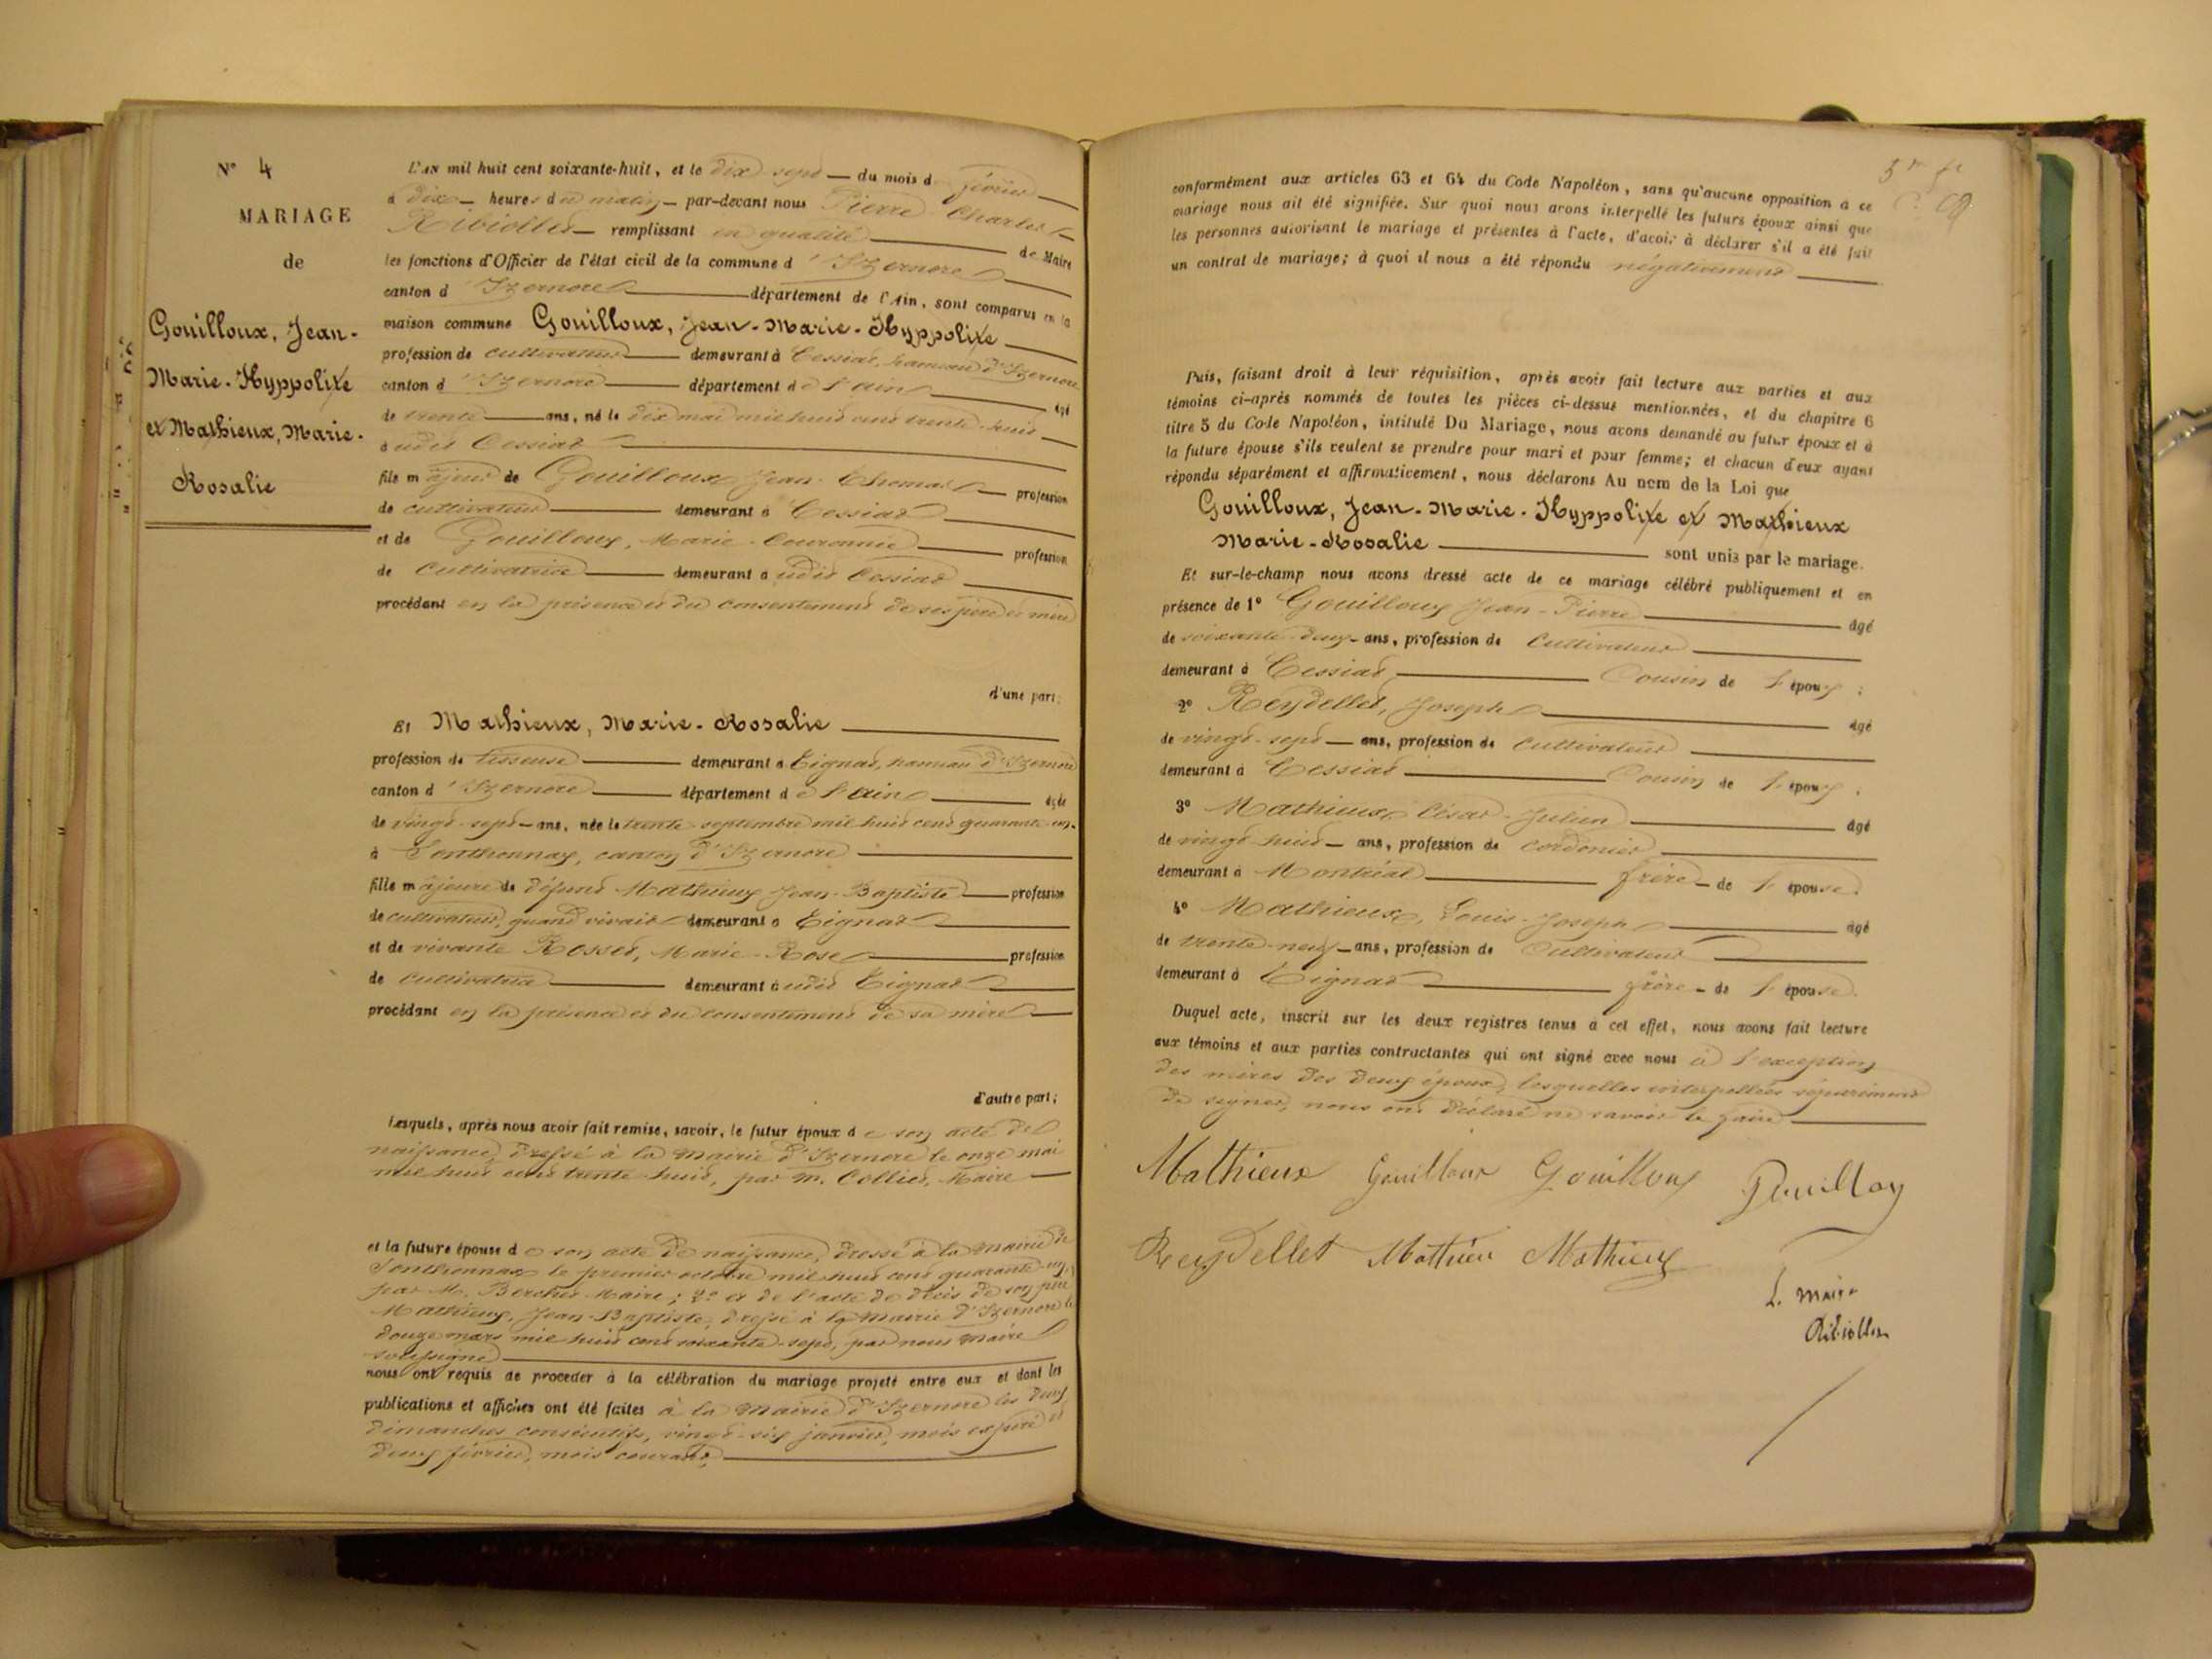 N° 4
MARIAGE
de
Gouilloux, Jean-
Marie-Hyppolite
et Mathieux, Marie-
Rosalie
L'AN mil huit cent soixante-huit, et le dix-sept du mois de février
à dix heures du matin par-devant nous Pierre Charles
Ribiollet remplissant en qualité de Maire
les fonctions d'Officier de l'état civil de la commune d'Izernore
canton d'Izernore département de l'Ain, sont comparus en la
maison commune Gouilloux, Jean-Marie-Hyppolite
profession de cultivateur demeurant à Cessiat, hameau d'Izernore
canton d'Izernore département de l'ain âgé
de trente ans, né le dix mai mil huit cent trente-huit
à udit Cessiat
fils majeur de Gouilloux Jean-Thomas profession
de cultivateur demeurant à Cessiat
et de Gouilloux, Marie-Couronnée profession
de Cultivatrice demeurant audit Cessiat
procédant en la présence et du consentement de ses père et mère
d'une part;
Et Mathieux, Marie-Rosalie
profession de tisseuse demeurant à Tignat, hameau d'Izernore
canton d'Izernore département de l'ain âgée
de vingt-sept ans, née le trente septembre mil huit cent quarante-un
à Sonthonnax, canton d'Izernore
fille majeure de défunt Mathieux Jean-Baptiste profession
de cultivateur, quand vivait demeurant à Tignat
et de vivante Rosset, Marie-Rose profession
de cultivatrice demeurant audit Tignat
procédant en la présence et du consentement de sa mère
d'autre part;
Lesquels, après nous avoir fait remise, savoir, le futur époux de son acte de
naissance, dressé à la mairie d'Izernore le onze mai
mil huit cent trente-huit, par m. Collet, Maire
et la future épouse de son acte de naissance, dressé à la mairie de
Sonthonnax le premier octobre mil huit cent quarante-un,
par M. Berchet Maire; 2° et de l'acte de décès de son père
Mathieux, Jean-Baptiste, dressé à la mairie d'Izernore le
douze mars mil huit cent soixante-sept, par nous maire
soussigné
nous ont requis de procéder à la célébration du mariage projeté entre eux et dont les
publications et affiches ont été faites à la mairie d'Izernore les deux
dimanches consécutifs, vingt-six janvier, mois expiré et
deux février, mois courant,
conformément aux articles 63 et 64 du Code Napoléon, sans qu'aucune opposition à ce
mariage nous ait été signifiée. Sur quoi nous avons interpellé les futurs époux ainsi que
les personnes autorisant le mariage et présentes à l'acte, d'avoir à déclarer s'il a été fait
un contrat de mariage; à quoi il nous a été répondu négativement
Puis, faisant droit à leur réquisition, après avoir fait lecture aux parties et aux
témoins ci-après nommés de toutes les pièces ci-dessus mentionnées, et du chapitre 6
titre 5 du Code Napoléon, intitulé Du Mariage, nous avons demandé au futur époux et à
la future épouse s'ils veulent se prendre pour mari et pour femme; et chacun d'eux ayant
répondu séparément et affirmativement, nous déclarons Au nom de la Loi que
Gouilloux, Jean-Marie-Hyppolite et Mathieux
Marie-Rosalie sont unis par le mariage.
Et sur-le-champ nous avons dressé acte de ce mariage célébré publiquement et en
présence de 1° Gouilloux Jean-Pierre âgé
de soixante-deux ans, profession de Cultivateur
demeurant à Cessiat Cousin de l'époux;
2° Reydellet, Joseph âgé
de vingt-sept ans, profession de Cultivateur
demeurant à Cessiat Cousin de l'époux;
3° Mathieux, César-Julien âgé
de vingt-huit ans, profession de cordonier
demeurant à Montréal frère de l'épouse.
4° Mathieux, Louis-Joseph âgé
de trente-neuf ans, profession de Cultivateur
demeurant à Tignat frère de l'épouse.
Duquel acte, inscrit sur les deux registres tenus à cet effet, nous avons fait lecture
aux témoins et aux parties contractantes qui ont signé avec nous à l'exception
des mères des deux époux, lesquelles interpellées séparément
de signer, nous ont déclaré ne savoir le faire
Mathieux Gouilloux Gouilloux Gouilloy
Reydellet Mathieu Mathieux
L. maire
Ribiollet